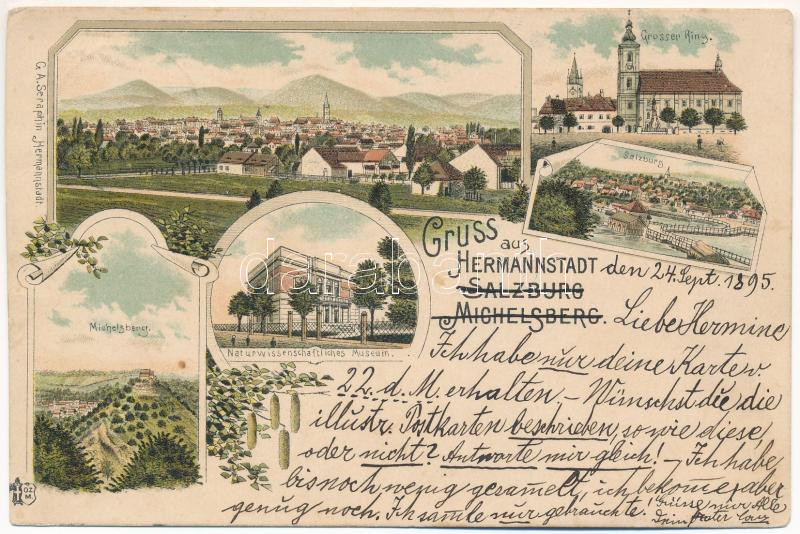 G. A. Seraphin Hermannstadt.
Grosser Ring.
Salzburg
Michelsberg.
Naturwissenschaftliches Museum.
Gruss aus
HERMANNSTADT
SALZBURG
MICHELSBERG.
den 24. Sept. 1895.
Liebe Hermine
Ich habe nur deine Karte v.
22. d. M. erhalten. – Wünschst du die
illustr. Postkarten beschrieben, so wie diese,
oder nicht? Antworte mir gleich! – Ich habe
bis noch wenig gesammelt, ich bekome aber
genug noch. Ich samle nur gebrauchte.
Grüsse mir Alle
Dein
darabanth